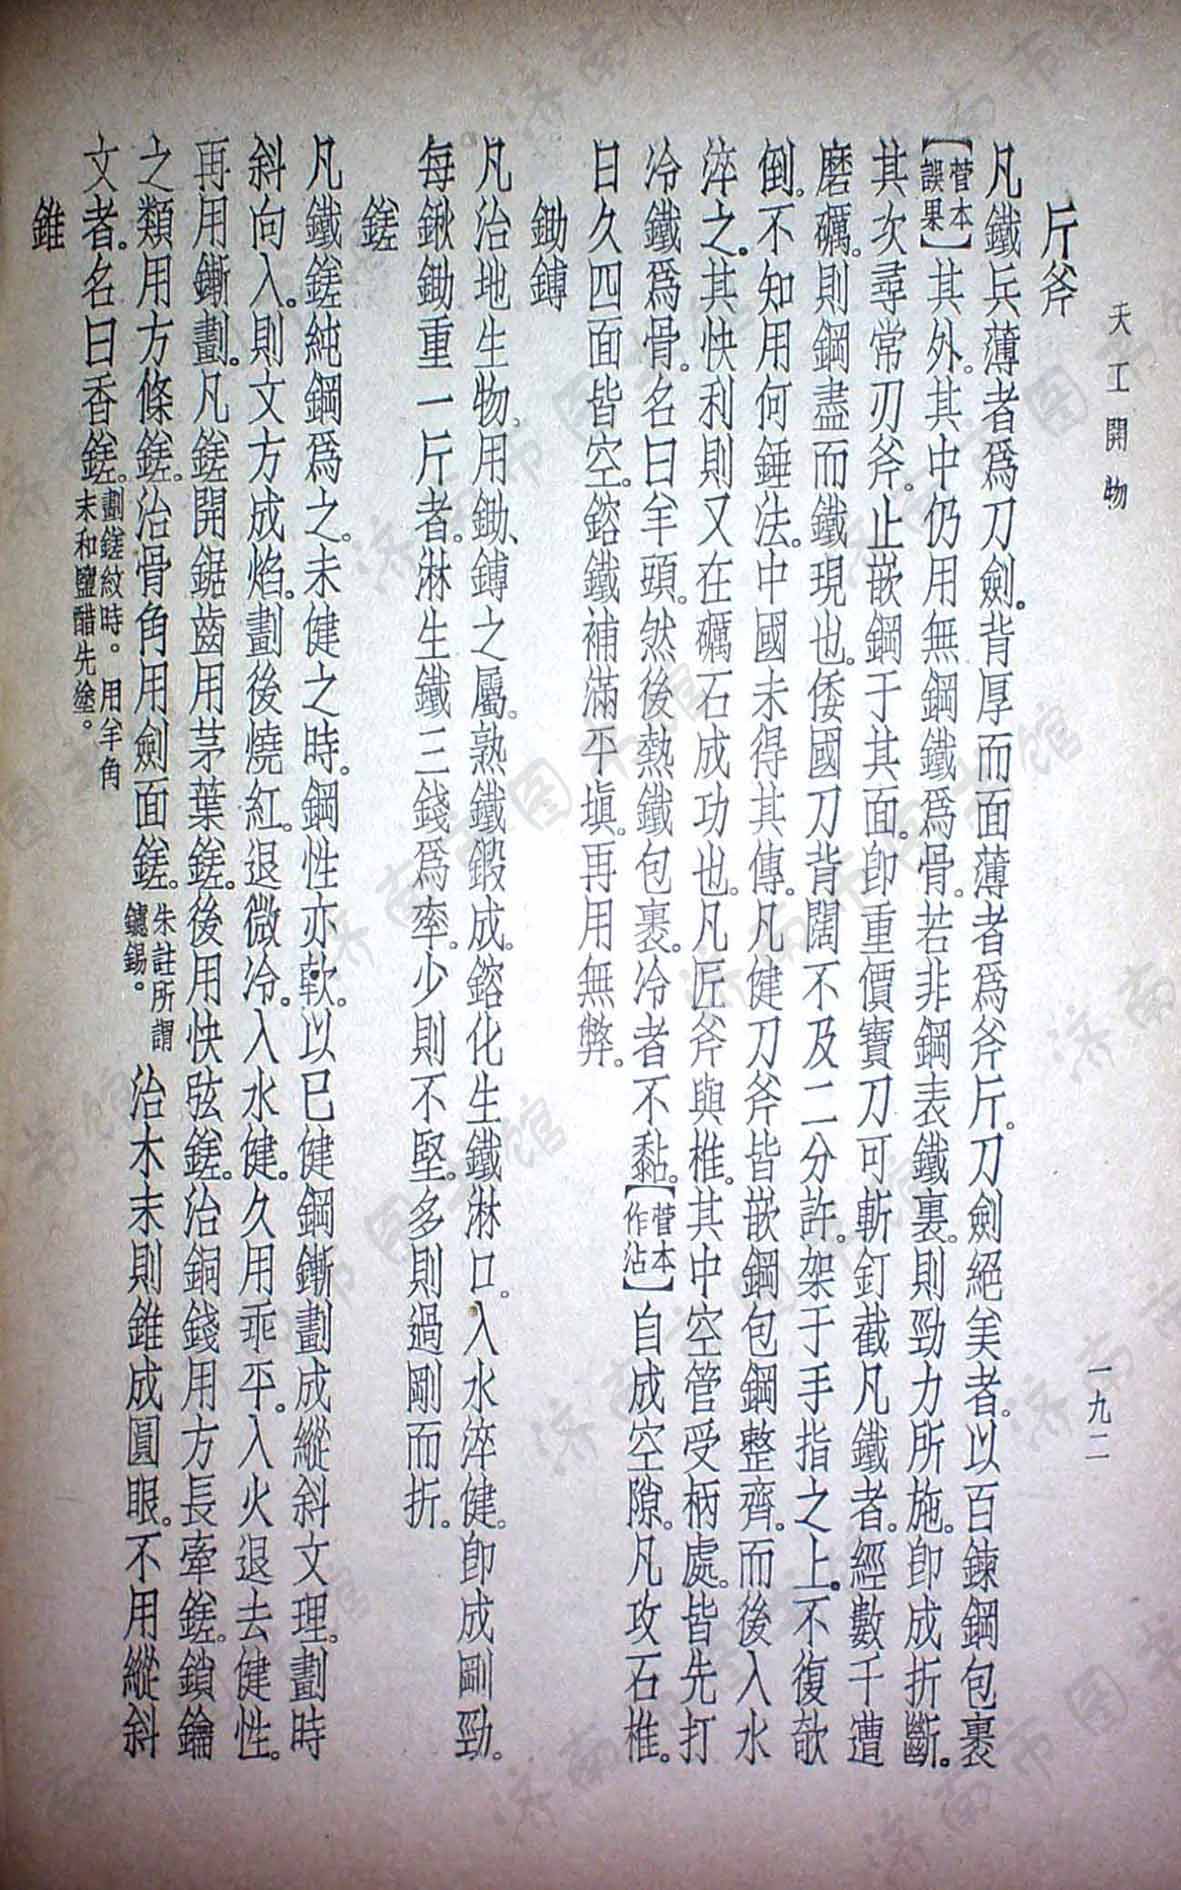 天工開物
一九二
斤斧
凡鐵兵薄者爲刀劍。背厚而面薄者爲斧斤。刀劍絕美者。以百鍊鋼包裹
【菅本誤果】其外。其中仍用無鋼鐵爲骨。若非鋼表鐵裏。則勁力所施。卽成折斷。
其次尋常刃斧。止嵌鋼于其面。卽重價寶刀可斬釘截凡鐵者。經數千遭
磨礪。則鋼盡而鐵現也。倭國刀背闊不及二分許。架于手指之上。不復欹
倒。不知用何錘法。中國未得其傳。凡健刀斧皆嵌鋼包鋼整齊。而後入水
淬之。其快利則又在礪石成功也。凡匠斧與椎。其中空管受柄處。皆先打
冷鐵爲骨。名曰羊頭。然後熱鐵包裹。冷者不黏。【菅本作沾】自成空隙。凡攻石椎。
日久四面皆空。鎔鐵補滿平塡。再用無弊。
鋤鎛
凡治地生物。用鋤、鎛之屬。熟鐵鍛成。鎔化生鐵淋口。入水淬健。卽成剛勁。
每鍬鋤重一斤者。淋生鐵三錢爲率。少則不堅。多則過剛而折。
鎈
凡鐵鎈純鋼爲之。未健之時。鋼性亦軟。以已健鋼鏨劃成縱斜文理。劃時
斜向入。則文方成焰。劃後燒紅。退微冷。入水健。久用乖平。入火退去健性。
再用鏨劃。凡鎈開鋸齒用茅葉鎈。後用快弦鎈。治銅錢用方長牽鎈。鎖鑰
之類用方條鎈。治骨角用劍面鎈。朱註所謂鑢錫。治木末則錐成圓眼。不用縱斜
文者。名曰香鎈。劃鎈紋時。用羊角末和鹽醋先塗。
錐